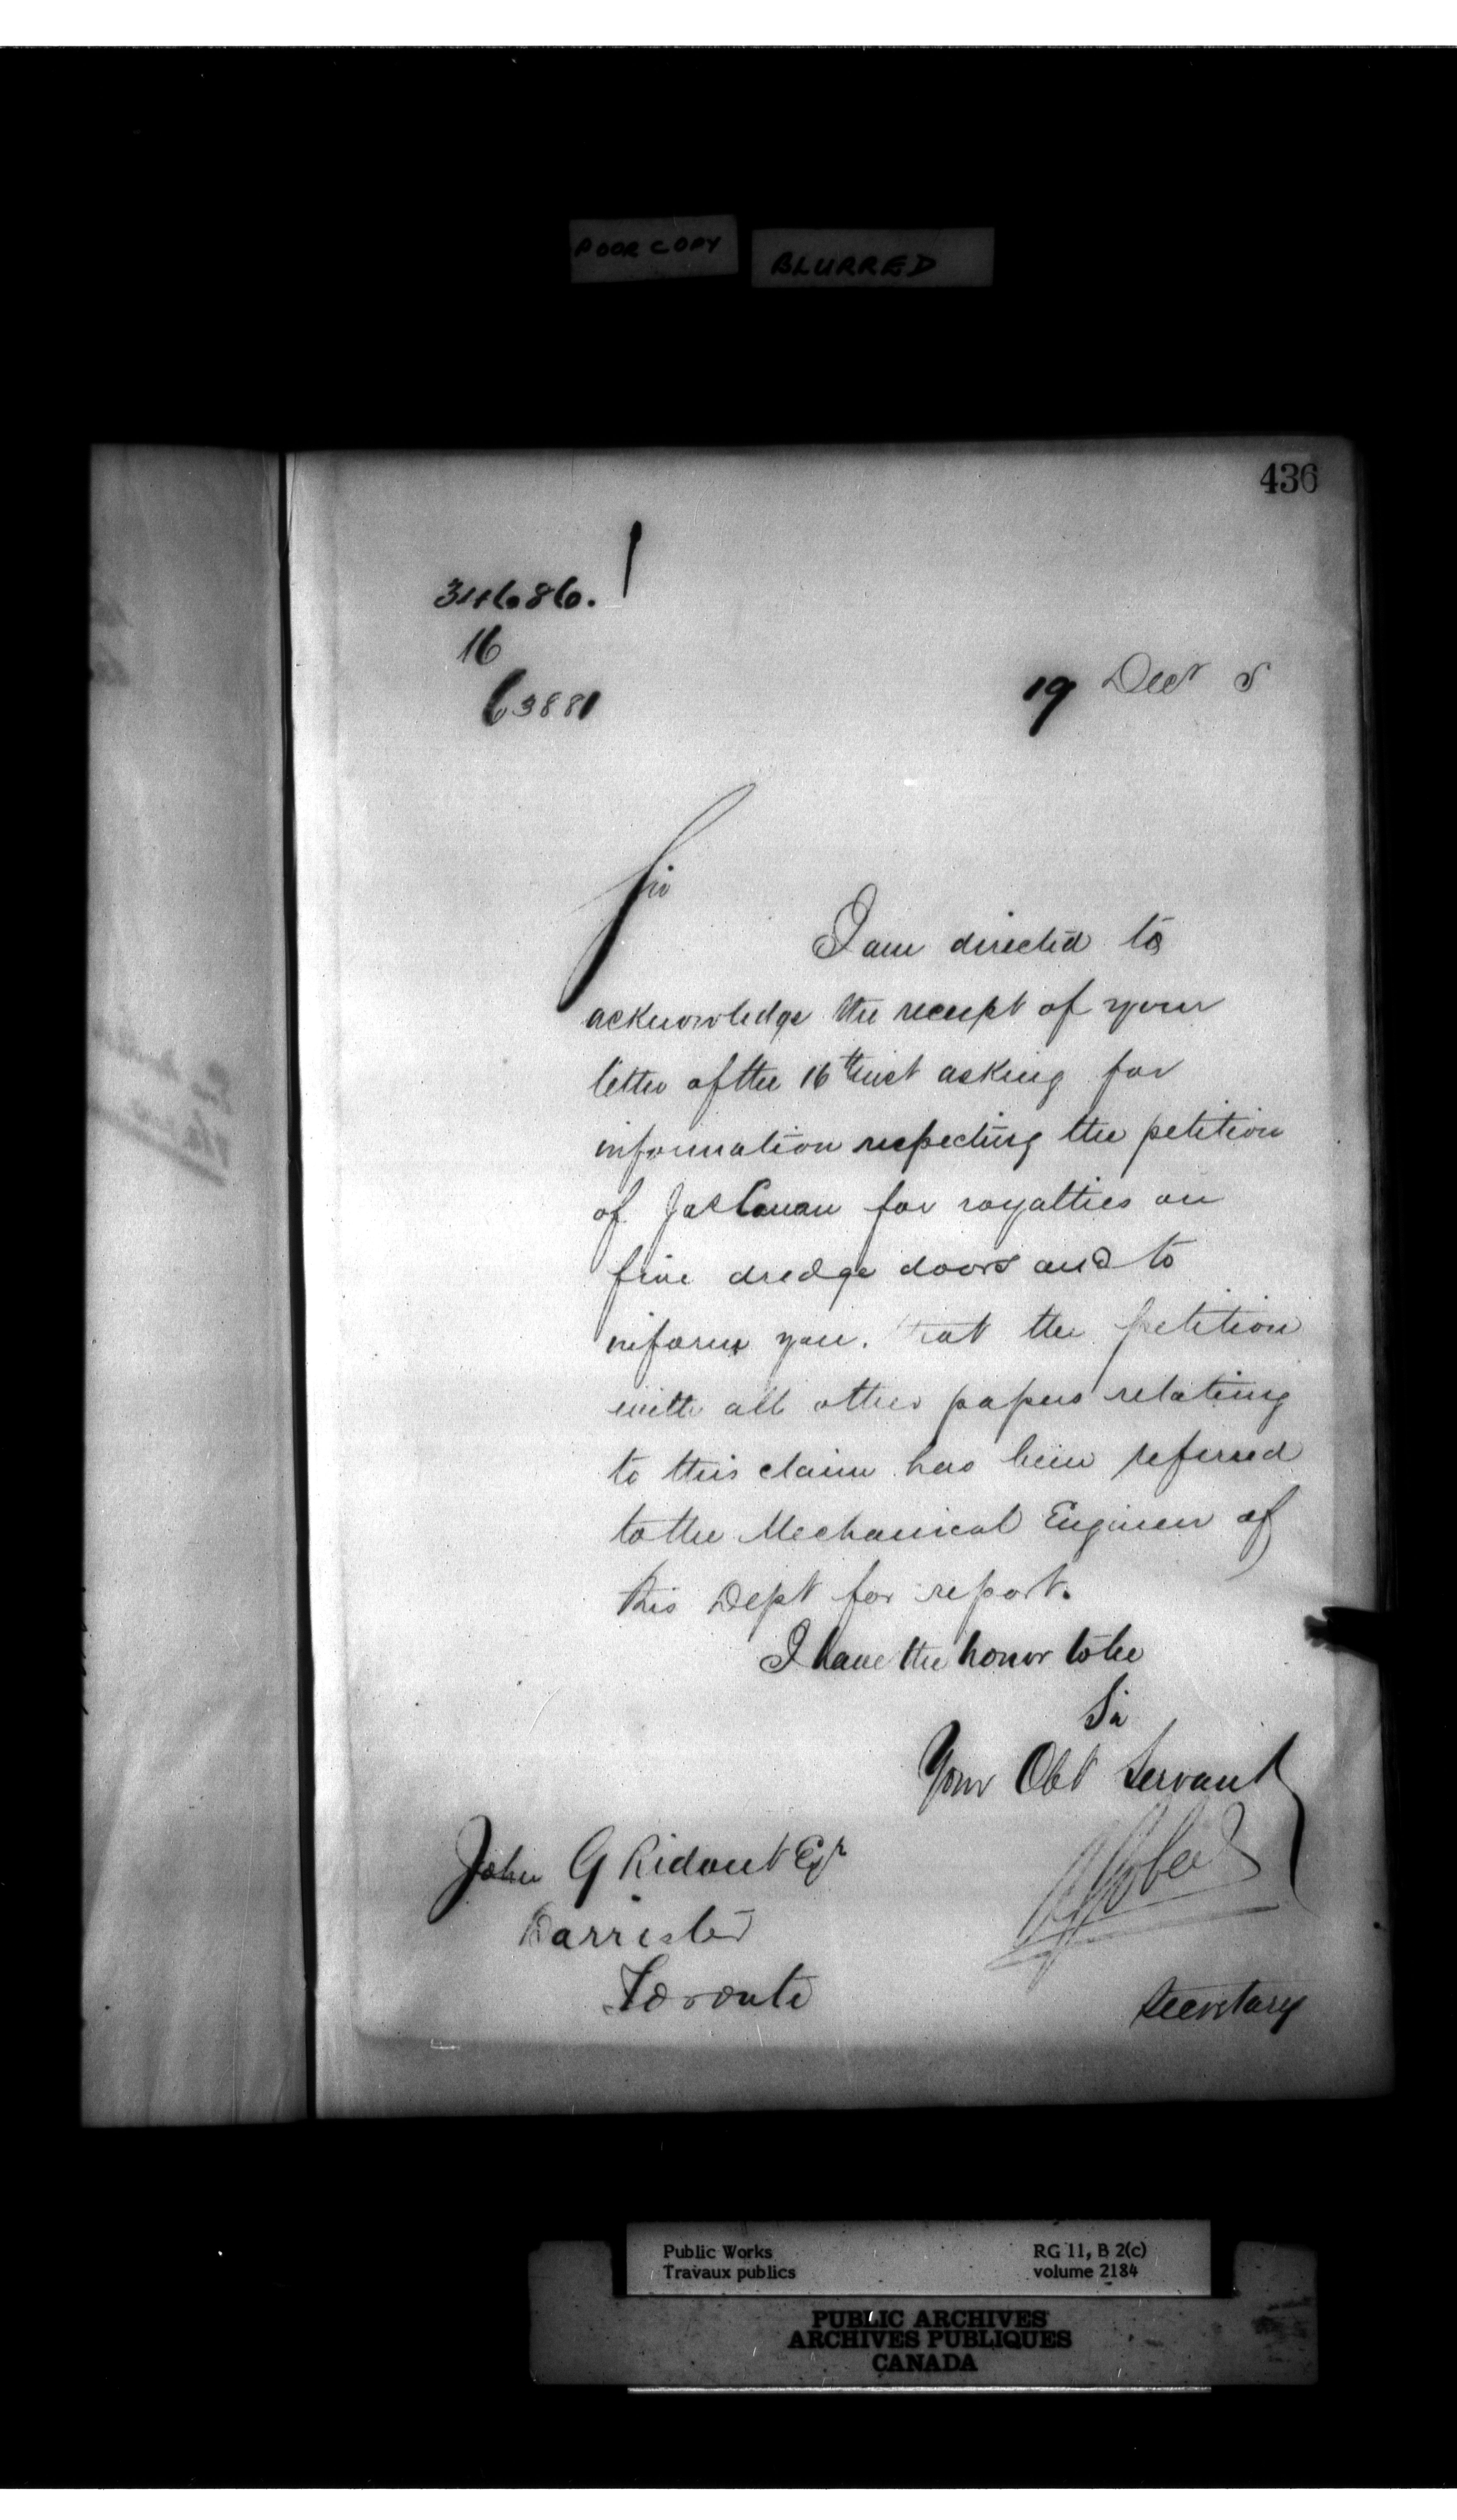 POOR COPY
BLURRED
436
34686.
16
63881
19 Decr 5
Sir
I am directed to
acknowledge the receipt of your
letter of the 16th inst asking for
information respecting the petition
of Jas Conan for royalties on
five dredge doors and to
inform you. that the petition
with all other papers relating
to this claim has been referred
to the Mechanical Engineer of
this Dept for report.
I have the honor to be
Sir
Your Obt Servant
John G Ridout Esqr
Barrister
Toronto
Secretary
Public Works
Travaux publics
RG 11, B 2(c)
volume 2184
PUBLIC ARCHIVES
ARCHIVES PUBLIQUES
CANADA